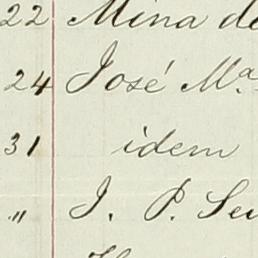 22 Mina de
24 José Mª
31 idem
" J. P.